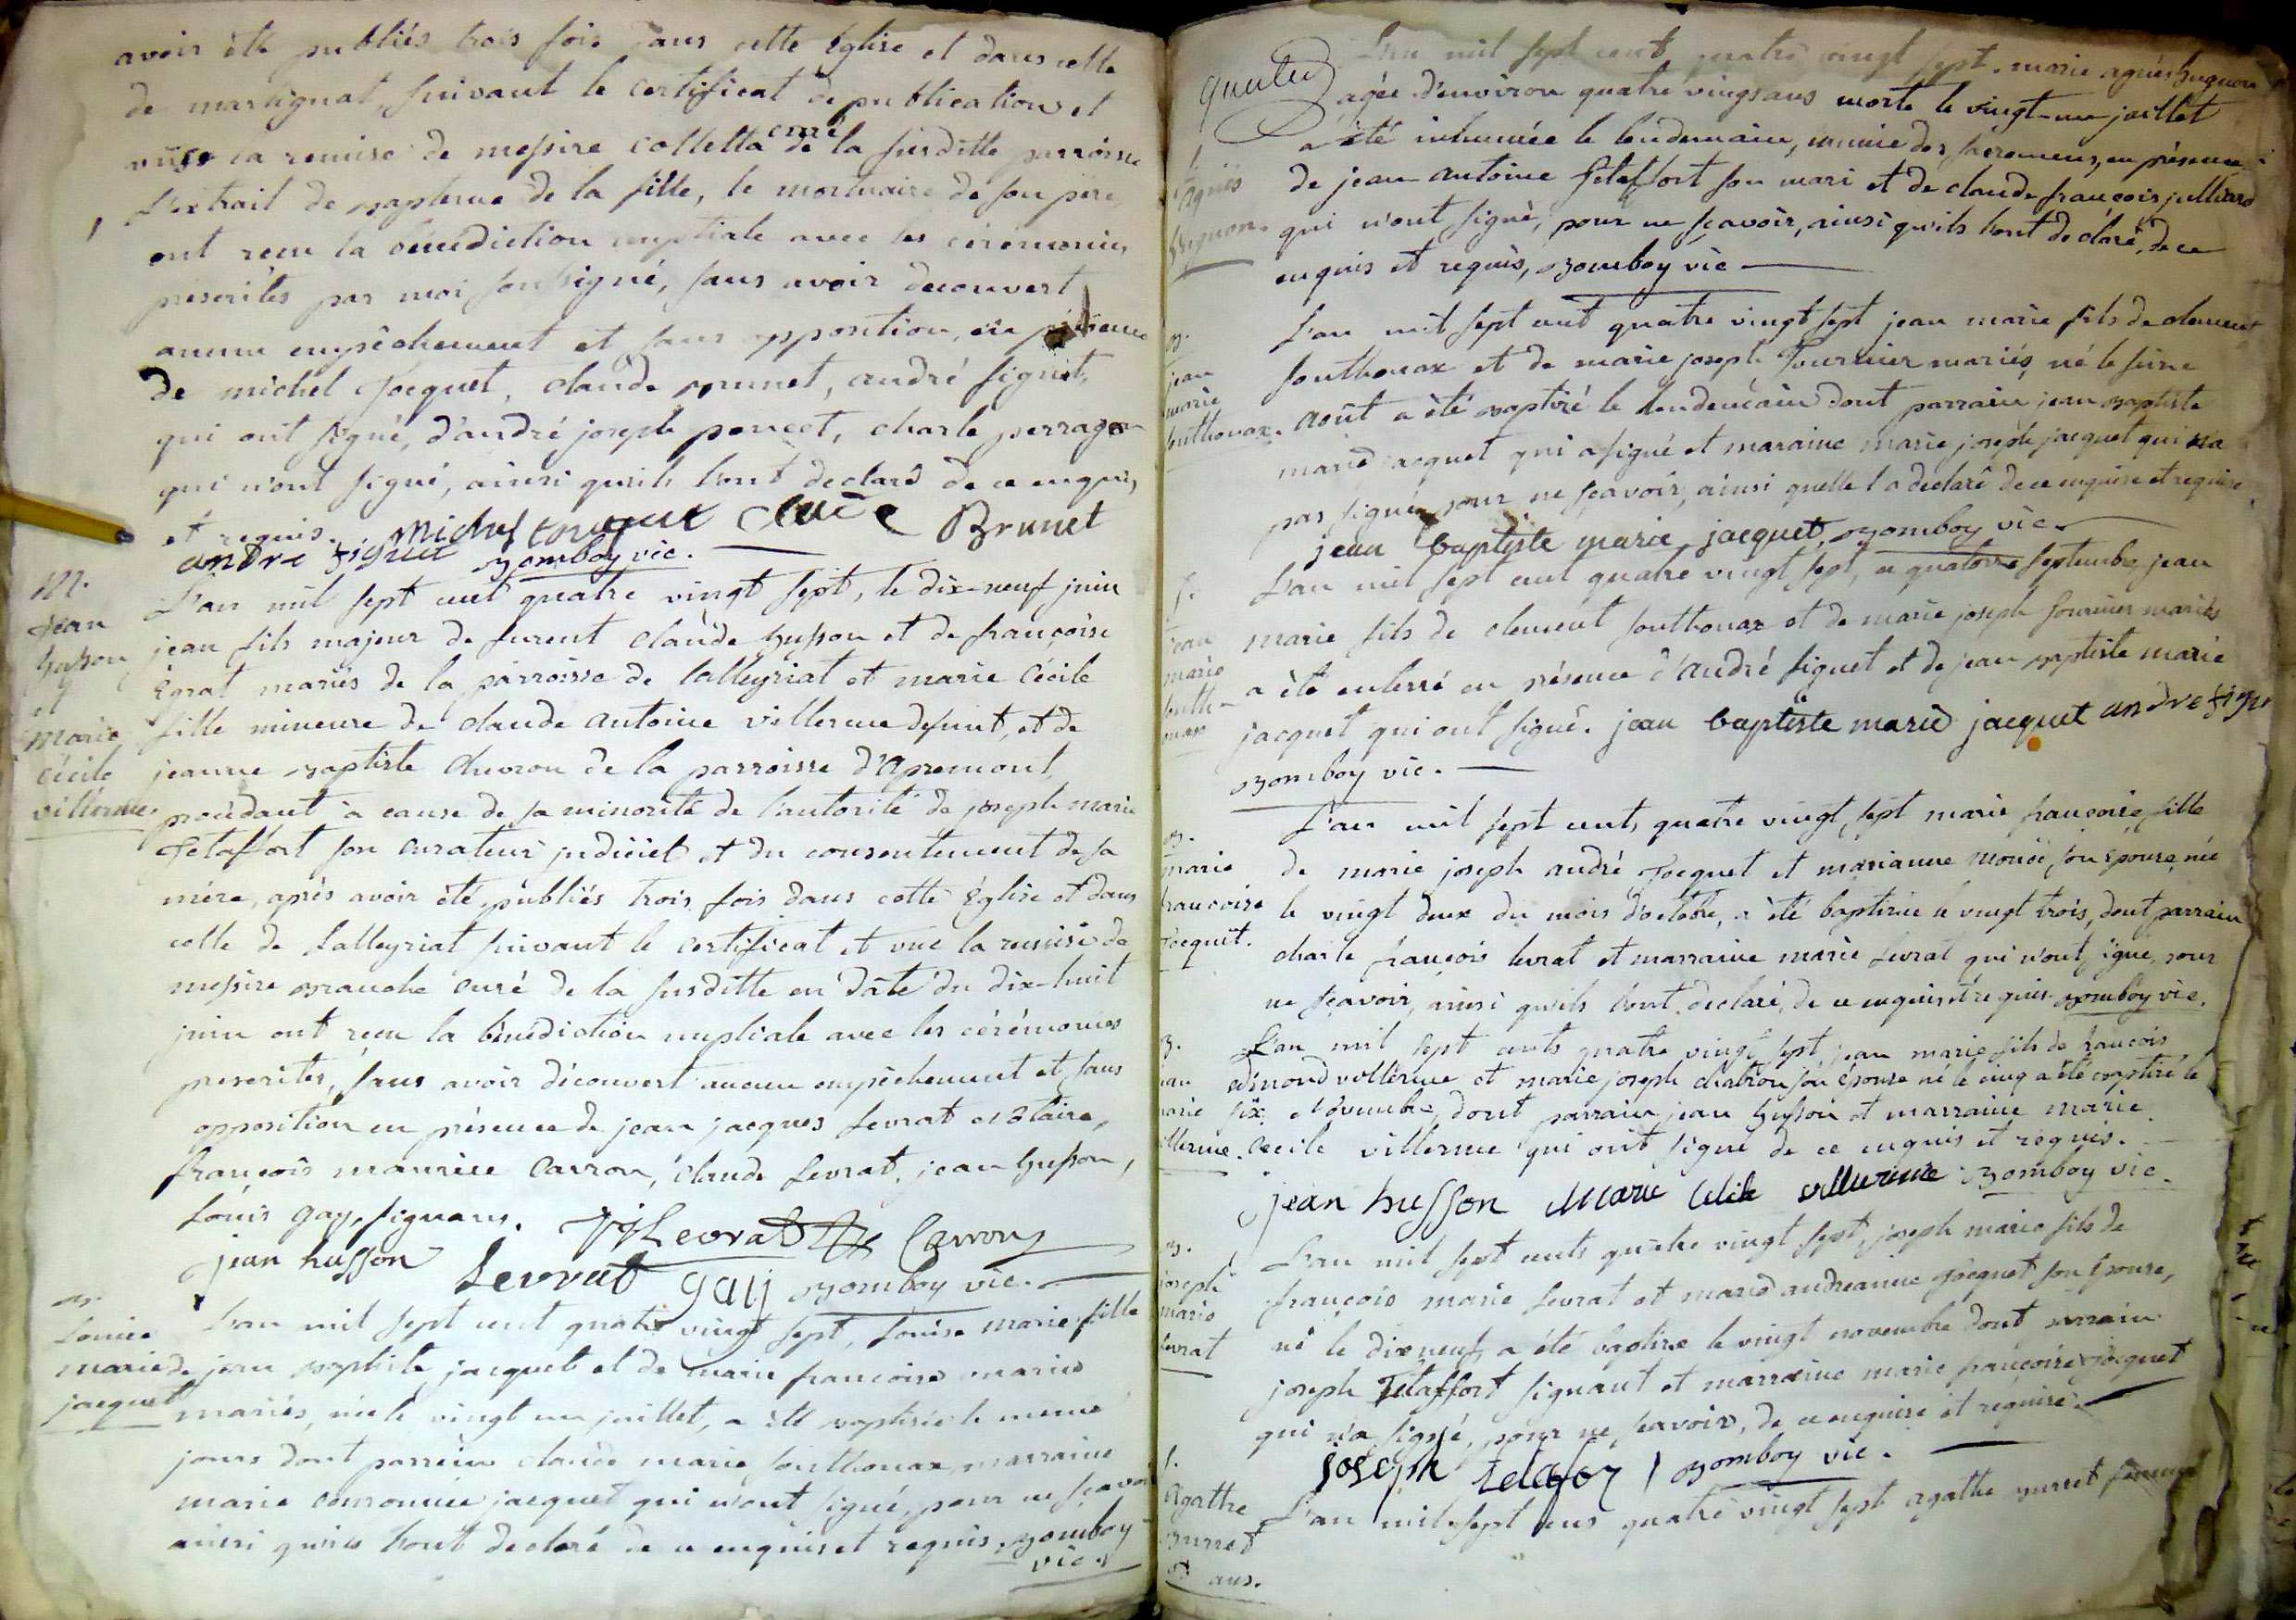 avoir été publiés trois fois dans cette Eglise et dans celle
de martignat, suivant le certificat de publication et
vu la remise de messire colletta curé de la susditte parroisse
l'extrait de baptême de la fille, le mortuaire de son père,
ont reçu la bénédiction nuptiale avec les cérémonies
prescrites par moi soussigné, sans avoir découvert
aucun empêchement et sans opposition, en présence
de michel Jocquet, claude Brunet, andré figuet,
qui ont signé, d'andré joseph poncet, charle perragon
qui n'ont signé, ainsi qu'ils l'ont declaré de ce enquis,
et requis. Michel claude Brunet
andre figuet Bomboy vic.
M.
jean
husson
et
Marie
Cécile
villerme.
L'an mil sept cent quatre vingt sept, le dix-neuf juin
jean fils majeur de furent claude husson et de françoise
Egrat mariés de la parroisse de Lalleyriat et marie Cécile
fille mineure de claude antoine villerme defunt, et de
jeanne Baptiste chevron de la parroisse d'apremont,
procédant à cause de sa minorité de l'autorité de joseph marie
Jetaffort son curateur judiciel et du consentement de sa
mère, après avoir été publiés trois fois dans cette Eglise et dans
celle de Lalleyriat suivant le certificat et vue la remise de
messire curé de la susditte en date du dix-huit
juin ont reçu la bénédiction nuptiale avec les cérémonies
prescrites, sans avoir découvert aucun empêchement et sans
opposition en présence de jean jacques Levrat notaire,
françois maurice Carron, claude Levrat, jean husson,
Louis gay, signans. JJLevrat Carron
jean husson Levrat gay Bomboy vic.
B.
Louise
marie
jacquet
L'an mil sept cent quatre vingt sept, Louise marie fille
de jean Baptiste jacquet et de marie françoise
mariés, née le vingt un juillet, a été baptisée le meme
jours dont parrein claude marie Southonax, marraine
marie jacquet qui n'ont signé, pour ne sçavoir
ainsi qu'ils l'ont declaré de ce enquis et requis, Bomboy
vic.
S.
Agnès
hugon.
L'an mil sept cent quatre vingt sept. marie agnès hugon
agée d'environ quatre vingts ans morte le vingt-un juillet
a été inhumée le lendemain, munie des sacremens, en présence
de jean-antoine Jetaffort son mari et de claude françois julliard
qui n'ont signé, pour ne sçavoir, ainsi qu'ils l'ont declaré, de ce
enquis et requis, Bomboy vic
B.
jean
marie
Southonax.
L'an mil sept cent quatre vingt sept jean marie fils de clement
Southonax et de marie joseph Fournier mariés, né le
août a été baptisé le lendemain dont parrain jean Baptiste
marie jacquet qui a signé et maraine marie joseph jacquet qui n'a
pas signé, pour ne sçavoir, ainsi quelle l'a declaré de ce enquise et requise,
jean baptiste marie jacquet, Bomboy vic.
S.
jean
marie
south-
onax
L'an mil sept cent quatre vingt sept, ce quatorze septembre jean
marie fils de clement Southonax et de marie joseph fournier mariés
a été enterré en présence d'andré figuet et de jean Baptiste marie
jacquet qui ont signé. jean baptiste marie jacquet andre figu
Bomboy vic.
B.
marie
françoise
Jocquet.
L'an mil sept cents quatre vingt, sept marie françoise, fille
de marie joseph andré Jocquet et marianne son epouse, née
le vingt deux du mois d'octobre, a été baptisée le vingt trois, dont parrain
charle françois levrat et marraine marie Levrat qui n'ont signé, pour
ne sçavoir, ainsi qu'ils l'ont declaré, de ce enquis et requis. Bomboy vic.
B.
jean
marie
villerme.
L'an mil sept cents quatre vingt sept, jean marie fils de françois
edmond villerme et marie joseph son épouse né le cinq a été baptisé le
six Novembre, dont parrain jean husson et marraine marie
Cecile villerme qui ont signé de ce enquis et requis.
jean husson Marie Cécile villerme Bomboy vic.
B.
joseph
marie
Levrat
L'an mil sept cents quatre vingt sept, joseph marie fils de
françois marie Levrat et marie andreanne Jocquet son epouse,
né le dixneuf, a été baptisé le vingt novembre dont parrain
joseph Jetaffort signant et marraine marie françoise Jocquet
qui n'a signé, pour ne sçavoir, de ce enquise et requise.
joseph Bomboy vic.
S.
Agathe
Burret
ans.
L'an mil sept cens quatre vingt sept agathe Burret femme